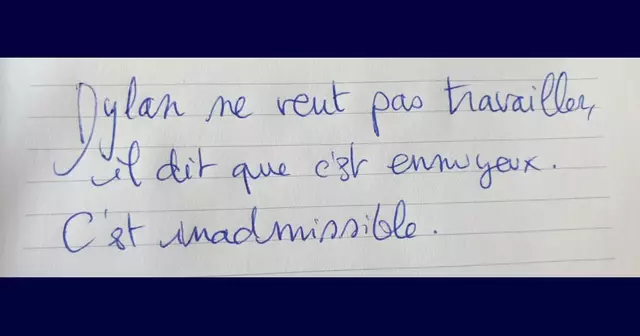 Dylan ne veut pas travailler,
il dit que c'est ennuyeux.
C'est inadmissible.